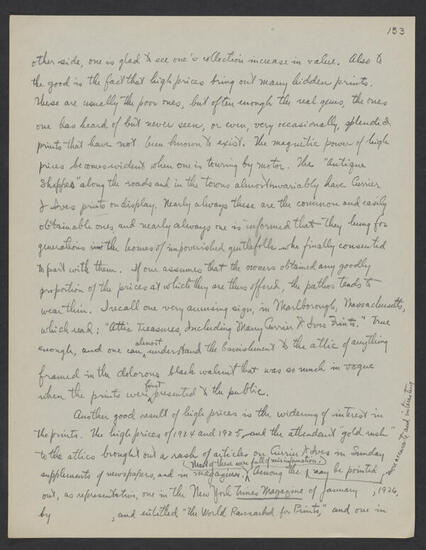 153
other side, one is glad to see one's collection increase in value. Also to
the good is the fact that high prices bring out many hidden prints.
These are usually the poor ones, but often enough the real gems, the ones
one has heard of but never seen, or even, very occasionally, splendid
prints that have not been known to exist. The magnetic power of high
prices becomes evident when one is touring by motor. The "Antique
Shoppes" along the roads and in the towns almost invariably have Currier
& Ives prints on display. Nearly always these are the common and easily
obtainable ones and nearly always one is informed that they hung for
generations in the homes of impoverished gentlefolk who finally consented
to part with them. If one assumes that the owners obtained any goodly
proportion of the prices at which they are thus offered, the pathos tends to
wear thin. I recall one very amusing sign, in Marlborough, Massachusetts,
which read; "Attic Treasures, Including Many Currier & Ives Prints." True
enough, and one can almost understand the banishment to the attic of anything
framed in the dolorous black walnut that was so much in vogue
when the prints were first presented to the public.
Another good result of high prices is the widening of interest in
the prints. The high prices of 1924 and 1925, and the attendant "gold rush"
to the attics brought out a rash of articles on Currier & Ives in Sunday
supplements of newspapers, and in magazines. (Most of these were full of misinformation.) Among the may be pointed
more accurate and interesting
out, as representative, one in the New York Times Magazine of January , 1926,
by , and entitled "The World Ransacked for Prints," and one in